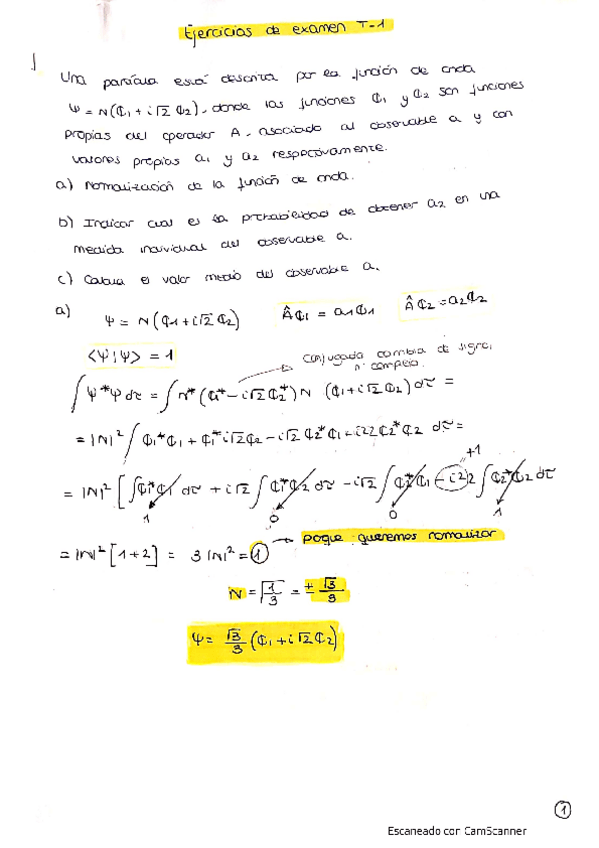 Ejercicios de examen T-1
1
Una partícula está descrita por la función de onda
Ψ = N(φ₁ + i√2 φ₂), donde las funciones φ₁ y φ₂ son funciones
propias del operador A, asociado al observable a y con
valores propios a₁ y a₂ respectivamente.
a) Normalización de la función de onda.
b) Indicar cual es la probabilidad de obtener a₂ en una
medida individual del observable a.
c) Calcula el valor medio del observable a.
a) Ψ = N(φ₁ + i√2 φ₂) Âφ₁ = a₁φ₁ Âφ₂ = a₂φ₂
⟨Ψ|Ψ⟩ = 1
conjugada cambia de signo
nº complejo.
∫Ψ*Ψ dτ = ∫N*(φ₁* - i√2 φ₂*) N (φ₁ + i√2 φ₂) dτ =
= |N|² ∫ φ₁*φ₁ + φ₁* i√2 φ₂ - i√2 φ₂*φ₁ - i²2 φ₂*φ₂ dτ =
+1
= |N|² [∫φ₁*φ₁ dτ + i√2 ∫φ₁*φ₂ dτ - i√2 ∫φ₂*φ₁ - i² 2 ∫φ₂*φ₂ dτ
1 0 0 1
= |N|² [1+2] = 3|N|² = 1 → poque queremos normalizar
N = √1/3 = ± √3/3
Ψ = √3/3 (φ₁ + i√2 φ₂)
1
Escaneado con CamScanner